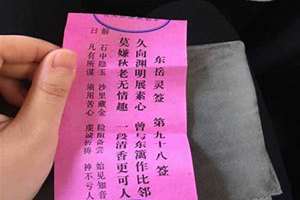 东岳灵签 第九十八签
久向渊明展素心 曾与东篱作比邻
莫嫌秋老无情趣 一段清香更可人
日解
石中隐玉 沙里藏金 险阻备尝 始见知音
凡有所谋 须用苦心 虔诚祈祷 神不亏人